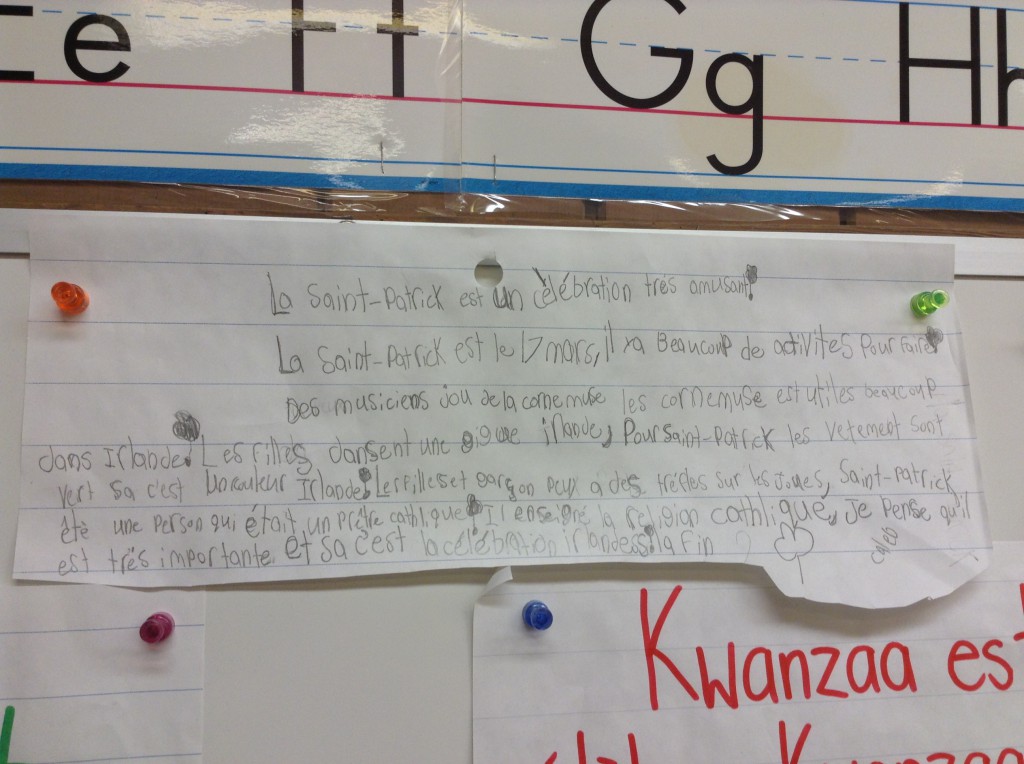 Ee Ff Gg Hh
La Saint-Patrick est un célébration trés amusant
La Saint-Patrick est le 17 mars, il ya Beaucoup de activites pour faire
Des musiciens jou de la cornemuse les cornemuse est utiles beaucoup
dans Irlande. Les filles dansent une gigue irlande, Pour Saint-Patrick les vetement sont
vert sa c'est Irlande. Les filles et garçon peux a des trefles sur les joues, Saint-Patrick
été une person qui était un Prêtre cathlique. Il enseigné la religion cathlique, Je Pense qu'il
est trés importante et sa c'est la célébration irlandess. la fin
caleb
Kwanzaa est
Kwanzaa